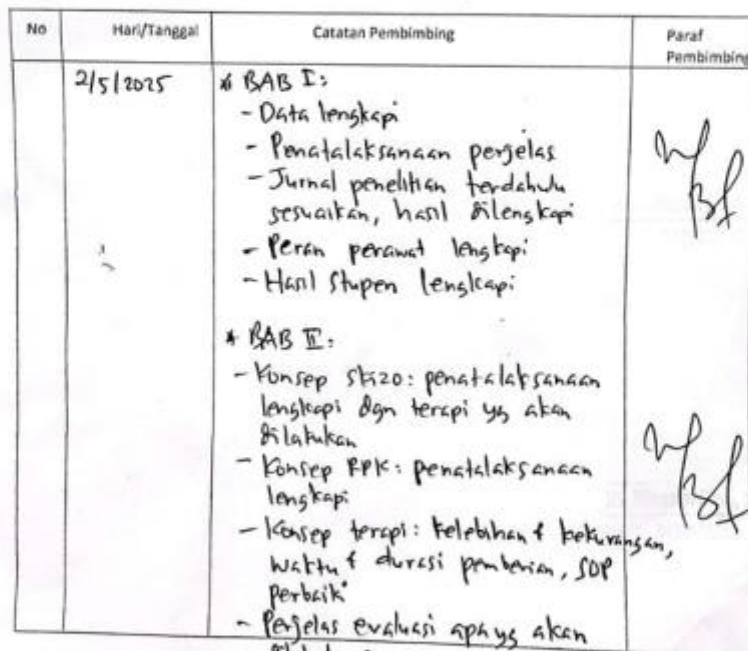 No Hari/Tanggal Catatan Pembimbing Paraf
Pembimbing
2/5/2025 * BAB I:
- Data lengkapi
- Penatalaksanaan perjelas
- Jurnal penelitian terdahulu
sesuaikan, hasil dilengkapi
- Peran perawat lengkapi
- Hasil stupen lengkapi
* BAB II:
- Konsep skizo: penatalaksanaan
lengkapi dgn terapi yg akan
dilakukan
- Konsep RPK: penatalaksanaan
lengkapi
- Konsep terapi: kelebihan & kekurangan,
waktu & durasi pemberian, SOP
perbaiki
- Perjelas evaluasi apa yg akan